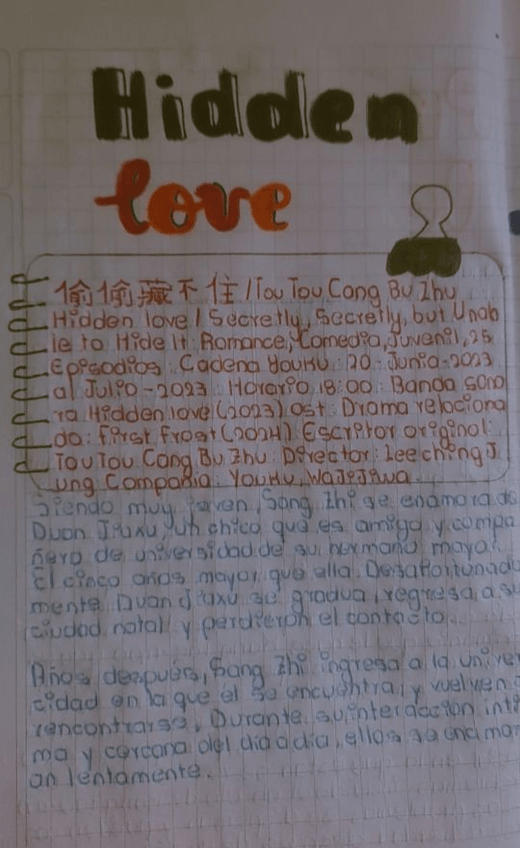 Hidden
love
偷偷藏不住 / Tou Tou Cang Bu Zhu
Hidden love / Secretly, Secretly, but Unab
le to Hide It: Romance, Comedia, Juvenil, 25
Episodios: Cadena Youku: 20 Junio-2023
al Julio-2023 Horario 18:00: Banda sono
ra Hidden love (2023) ost: Drama relaciona
do: First Frost (2024) Escritor original:
Tou Tou Cang Bu Zhu: Director: Lee ching J
ung Compañia: Youku, Wajijiwa
Siendo muy joven, Sang Zhi se enamora de
Duan Jiaxu, un chico que es amigo y compa
ñero de universidad de su hermano mayor.
El cinco años mayor que ella. Desafortunada
mente. Duan Jiaxu se gradua, regresa a su
ciudad natal y perdieron el contacto.
Años después, Sang Zhi ingresa a la univer
cidad en la que él se encuentra, y vuelven a
rencontrarse, Durante su interacción ínti
ma y cercana del dia a dia, ellos se enamor
an lentamente.